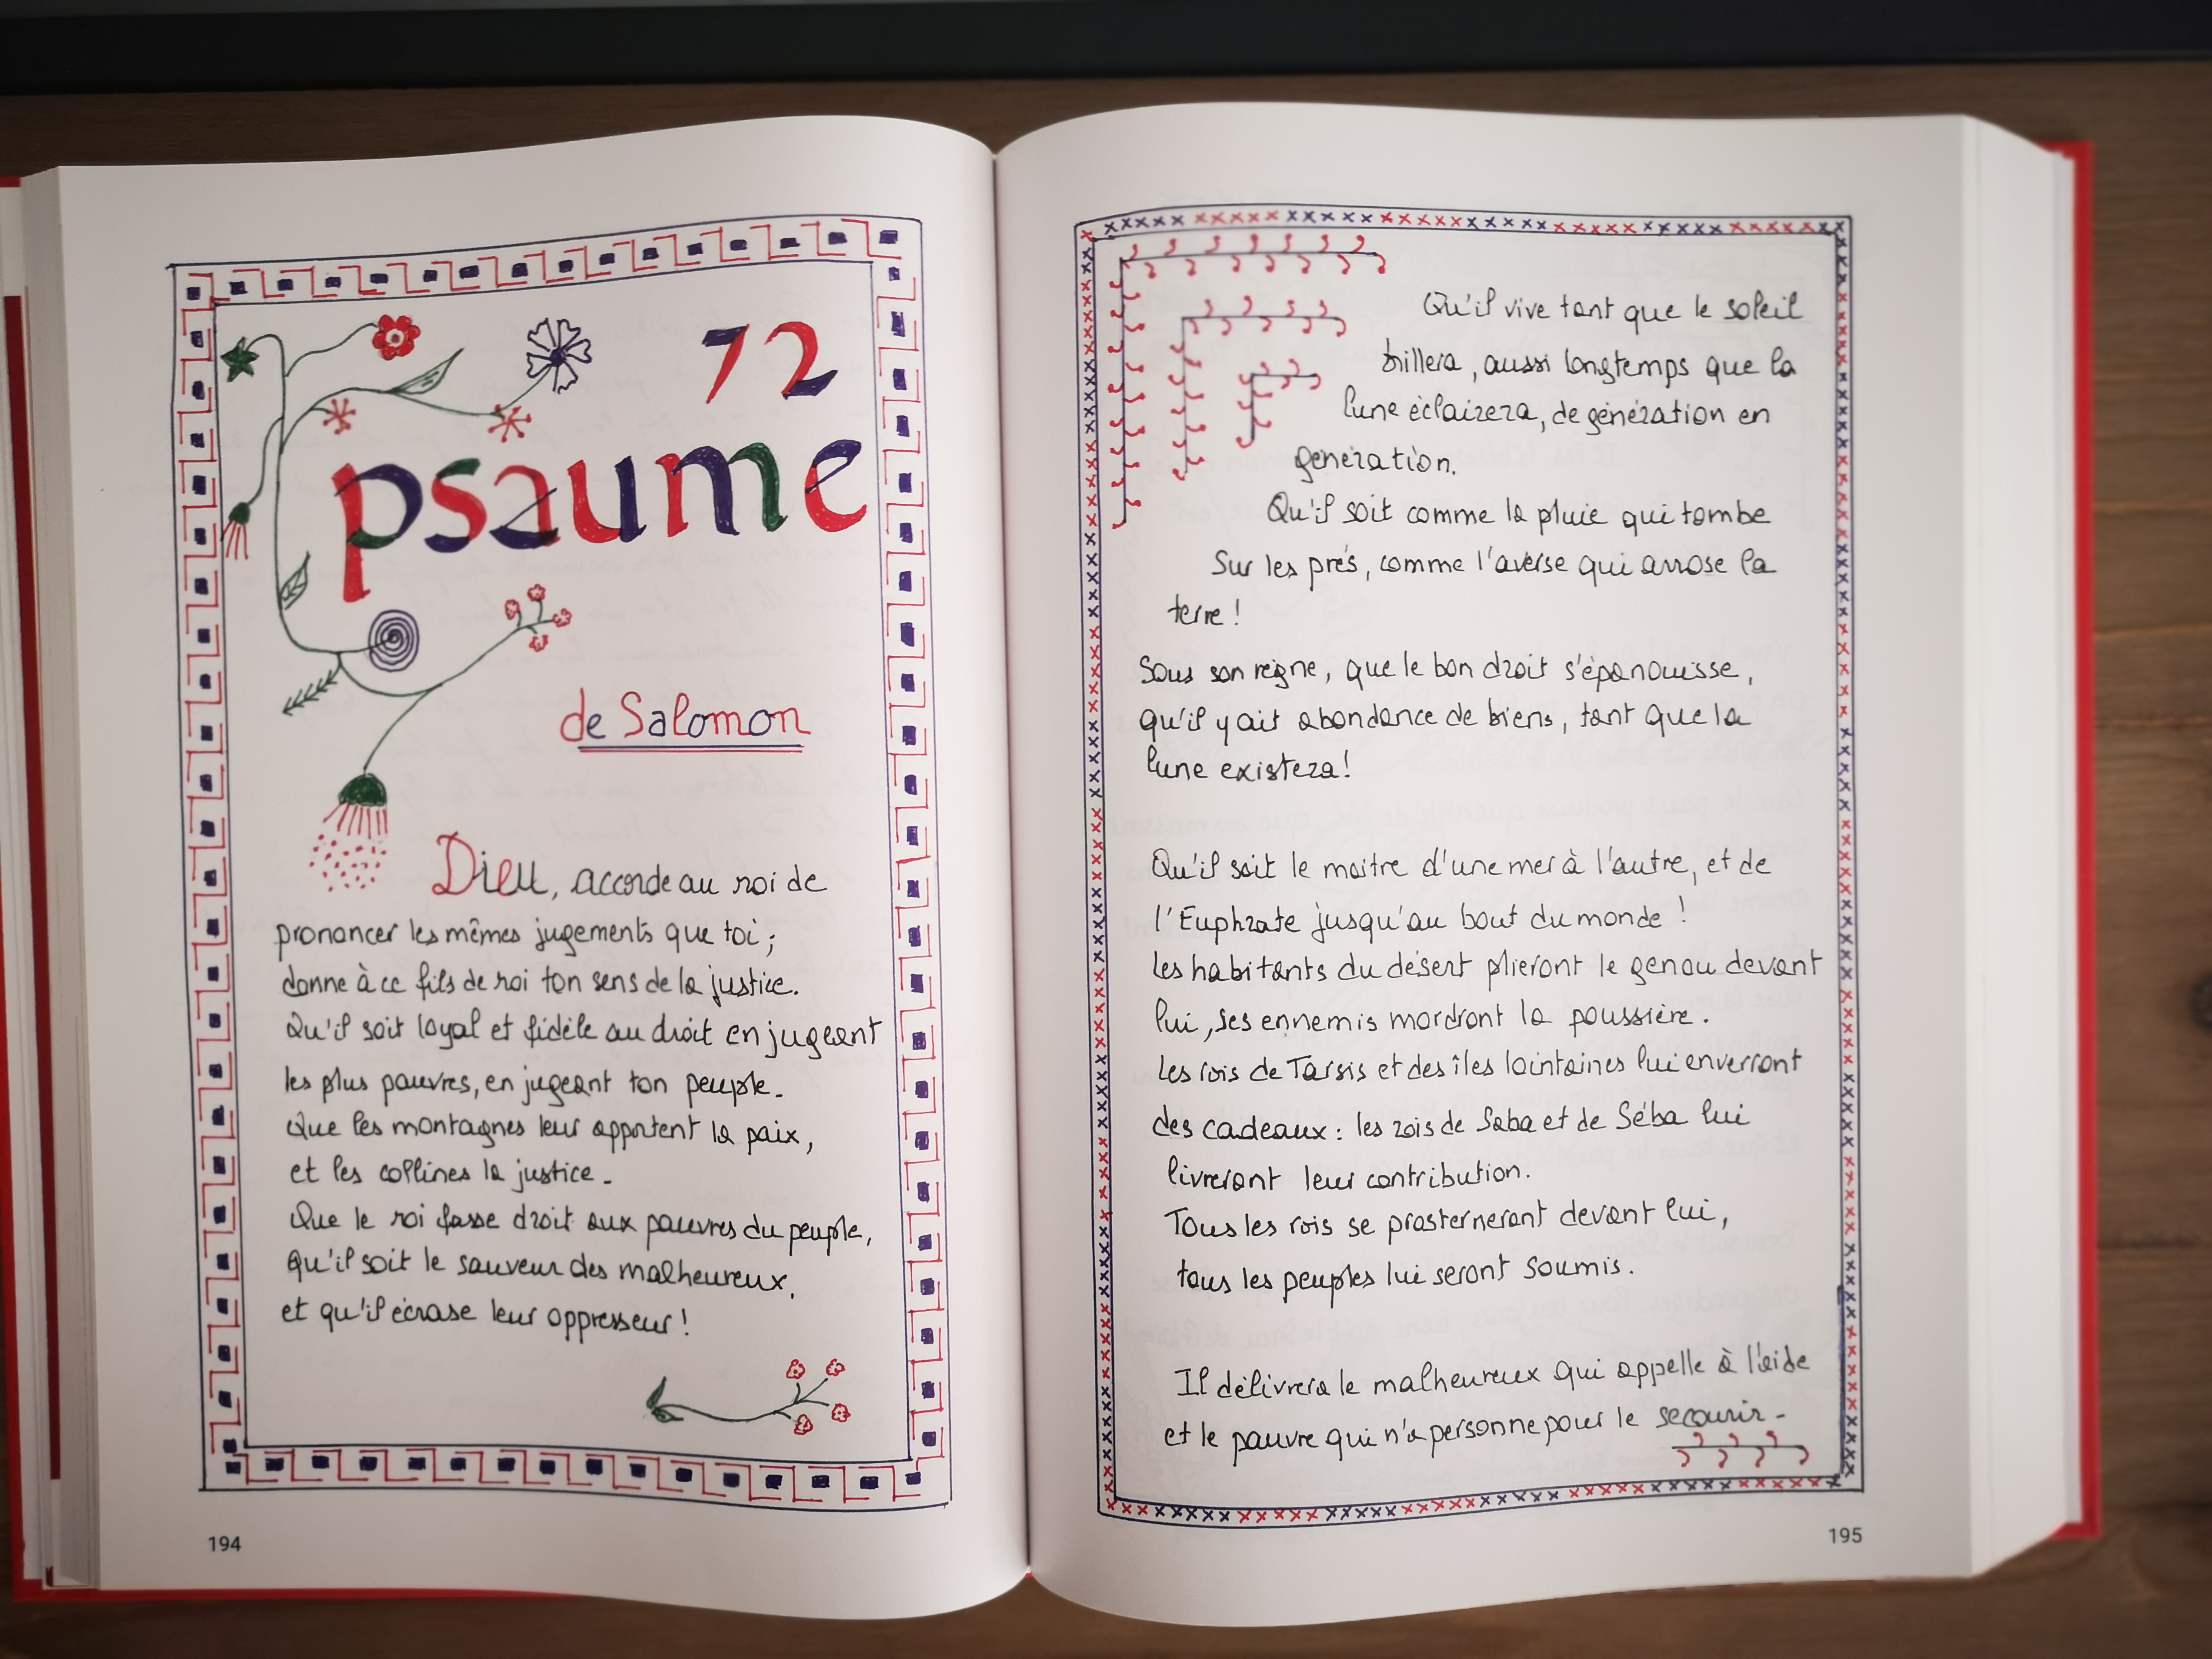 72
psaume
de Salomon
Dieu, accorde au roi de
prononcer les mêmes jugements que toi ;
donne à ce fils de roi ton sens de la justice.
Qu'il soit loyal et fidèle au droit en jugeant
les plus pauvres, en jugeant ton peuple.
Que les montagnes leur apportent la paix,
et les collines la justice.
Que le roi fasse droit aux pauvres du peuple,
qu'il soit le sauveur des malheureux,
et qu'il écrase leur oppresseur !
194
Qu'il vive tant que le soleil
brillera, aussi longtemps que la
lune éclairera, de génération en
génération.
Qu'il soit comme la pluie qui tombe
Sur les prés, comme l'averse qui arrose la
terre !
Sous son règne, que le bon droit s'épanouisse,
qu'il y ait abondance de biens, tant que la
lune existera !
Qu'il soit le maitre d'une mer à l'autre, et de
l'Euphrate jusqu'au bout du monde !
Les habitants du désert plieront le genou devant
lui, ses ennemis mordront la poussière.
Les rois de Tarsis et des îles lointaines lui enverront
des cadeaux : les rois de Saba et de Séba lui
livreront leur contribution.
Tous les rois se prosterneront devant lui,
tous les peuples lui seront soumis.
Il délivrera le malheureux qui appelle à l'aide
et le pauvre qui n'a personne pour le secourir.
195